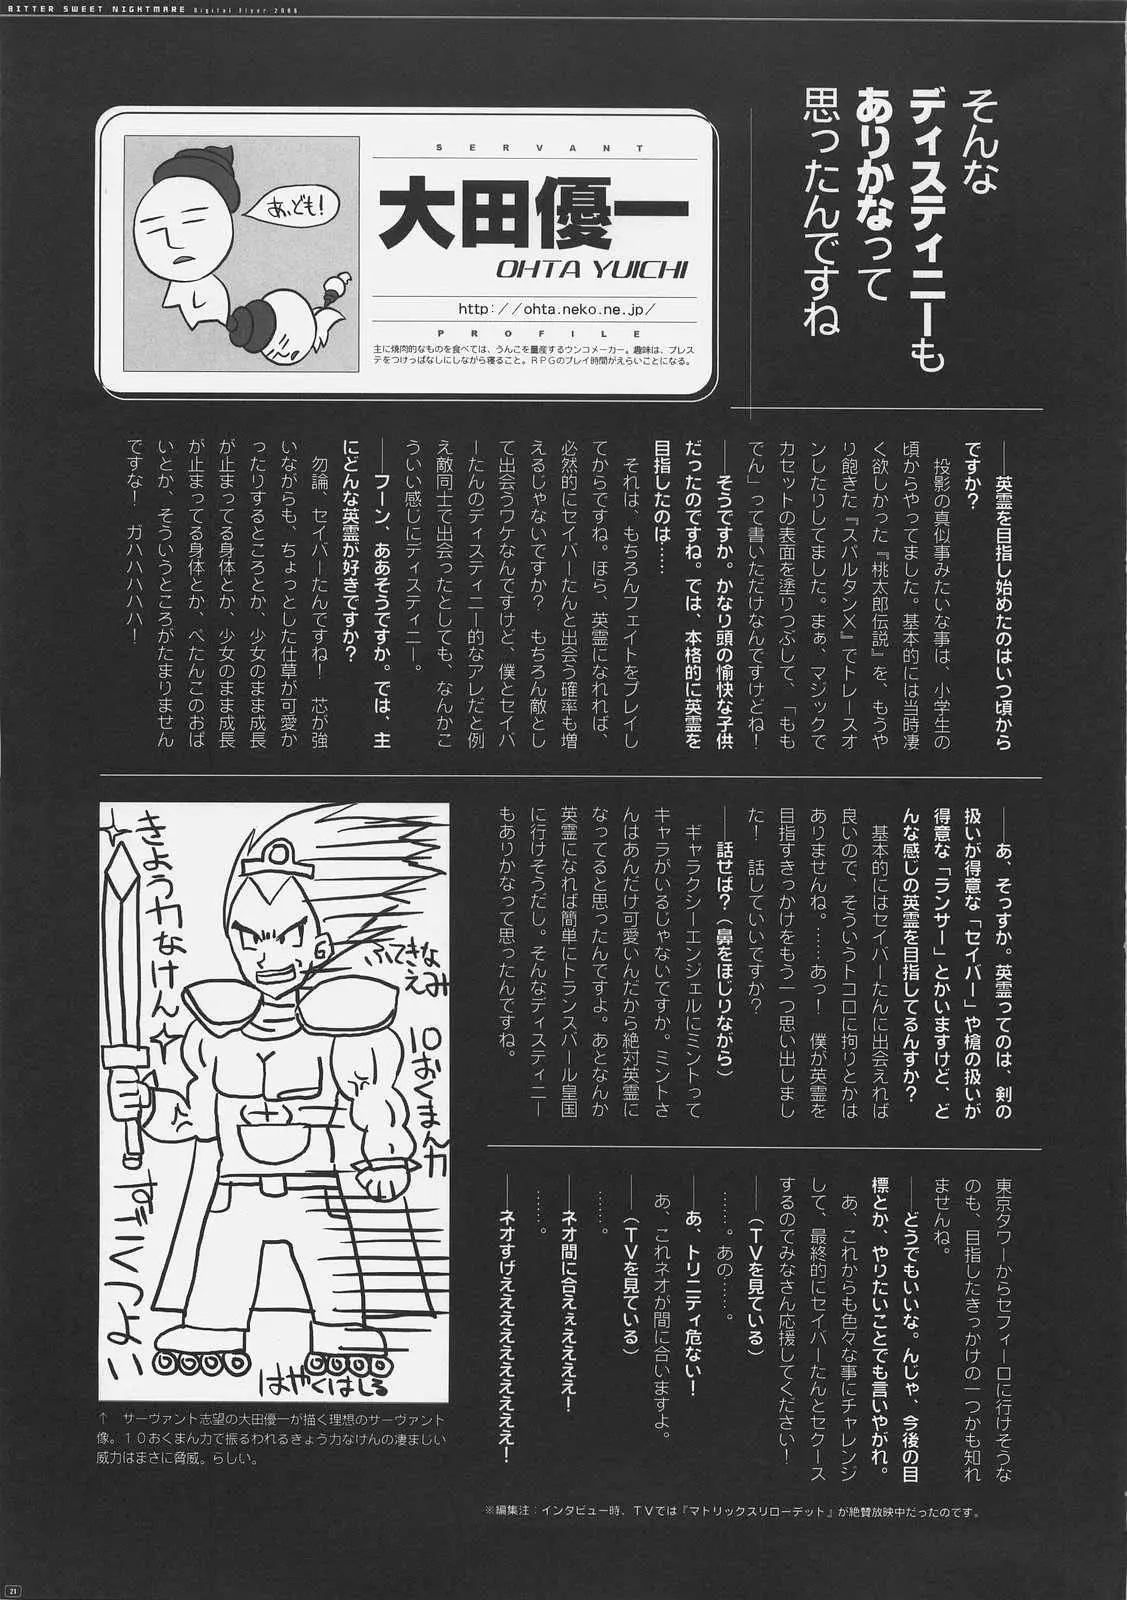 BITTER SWEET NIGHTMARE Digital Flyer 2006
そんな
ディスティニーも
ありかなって
思ったんですね
SERVANT
大田優一
OHTA YUICHI
http://ohta.neko.ne.jp/
PROFILE
主に焼肉的なものを食べては、うんこを量産するウンコメーカー。趣味は、プレス
テをつけっぱなしにしながら寝ること。RPGのプレイ時間がえらいことになる。
あ、ども!
――英霊を目指し始めたのはいつ頃から
ですか?
投影の真似事みたいな事は、小学生の
頃からやってました。基本的には当時凄
く欲しかった『桃太郎伝説』を、もうや
り飽きた『スパルタンX』でトレースオ
ンしたりしてました。まぁ、マジックで
カセットの表面を塗りつぶして、「もも
でん」って書いただけなんですけどね!
――そうですか。かなり頭の愉快な子供
だったのですね。では、本格的に英霊を
目指したのは……
それは、もちろんフェイトをプレイし
てからですね。ほら、英霊になれれば、
必然的にセイバーたんと出会う確率も増
えるじゃないですか? もちろん敵とし
て出会うワケなんですけど、僕とセイバ
ーたんのディスティニー的なアレだと例
え敵同士で出会ったとしても、なんかこ
ういい感じにディスティニー。
――フーン、ああそうですか。では、主
にどんな英霊が好きですか?
勿論、セイバーたんですね! 芯が強
いながらも、ちょっとした仕草が可愛か
ったりするところとか、少女のまま成長
が止まってる身体とか、少女のまま成長
が止まってる身体とか、ぺたんこのおぱ
いとか、そういうところがたまりません
ですな! ガハハハハハ!
――あ、そっすか。英霊ってのは、剣の
扱いが得意な「セイバー」や槍の扱いが
得意な「ランサー」とかいますけど、ど
んな感じの英霊を目指してるんすか?
基本的にはセイバーたんに出会えれば
良いので、そういうトコロに拘りとかは
ありませんね。……あっ! 僕が英霊を
目指すきっかけをもう一つ思い出しまし
た! 話していいですか?
――話せば?(鼻をほじりながら)
ギャラクシーエンジェルにミントって
キャラがいるじゃないですか。ミントさ
んはあんだけ可愛いんだから絶対英霊に
なってると思ったんですよ。あとなんか
英霊になれば簡単にトランスバール皇国
に行けそうだし。そんなディスティニー
もありかなって思ったんですね。
東京タワーからセフィーロに行けそうな
のも、目指したきっかけの一つかも知れ
ませんね。
――どうでもいいな。んじゃ、今後の目
標とか、やりたいことでも言いやがれ。
あ、これからも色々な事にチャレンジ
して、最終的にセイバーたんとセクース
するのでみなさん応援してください!
――(TVを見ている)
……。あの……。
――あ、トリニティ危ない!
あ、これネオが間に合いますよ。
――(TVを見ている)
……。
――ネオ間に合えぇえええ!
……。
――ネオすげえええええええええ!
きょう力なけん
すごくつよい
ふてきな
えみ
10おくまん力
はやくはしる
↑ サーヴァント志望の大田優一が描く理想のサーヴァント
像。10おくまん力で振るわれるきょう力なけんの凄まじい
威力はまさに脅威。らしい。
※編集注:インタビュー時、TVでは『マトリックスリローデット』が絶賛放映中だったのです。
21